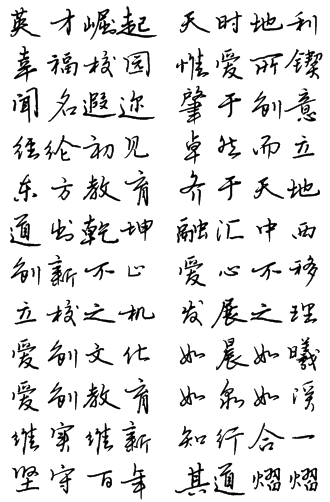 英才崛起 天时地利
幸福校园 惟爱所锲
闻名遐迩 肇于创意
经纶初见 卓然而立
东方教育 齐于天地
道出乾坤 融汇中西
创新不止 爱心不移
立校之机 发展之理
爱创文化 如晨如曦
爱创教育 如泉如溪
维实维新 知行合一
坚守百年 其道熠熠